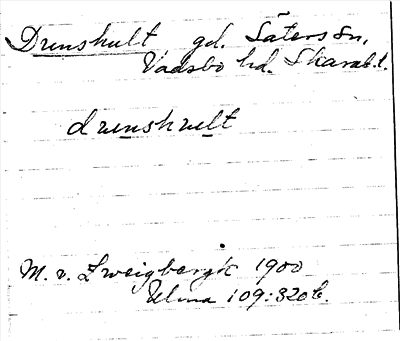 Drunshult gd. Säters sn,
Vadsbo hd. Skarab.l.
drunshult
M. v. Zweigbergk 1900
Ulma 109:320 b.